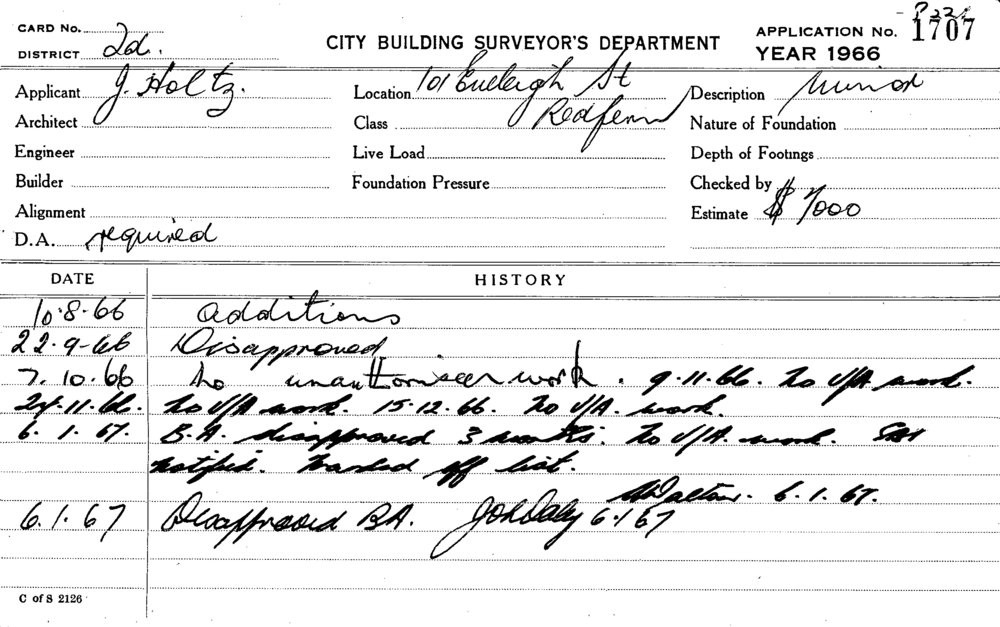 CARD No. P22
DISTRICT 2d.
CITY BUILDING SURVEYOR'S DEPARTMENT
APPLICATION No. 1707
YEAR 1966
Applicant J. Holtz. Location 101 Eveleigh St Description Minor
Architect Class Redfern Nature of Foundation
Engineer Live Load Depth of Footings
Builder Foundation Pressure Checked by
Alignment Estimate $ 7000
D.A. required
DATE HISTORY
10.8.66 additions
22.9.66 Disapproved
7.10.66 No unauthoriseer work. 9.11.66. No U/A work.
24.11.66. No U/A work. 15.12.66. No U/A. work.
6.1.67. B.A. disapproved 3 months. No U/A. work.
notified. Marked off list.
6.1.67.
6.1.67 Disapproved BA. J Daly 6.1.67
C of S 2126